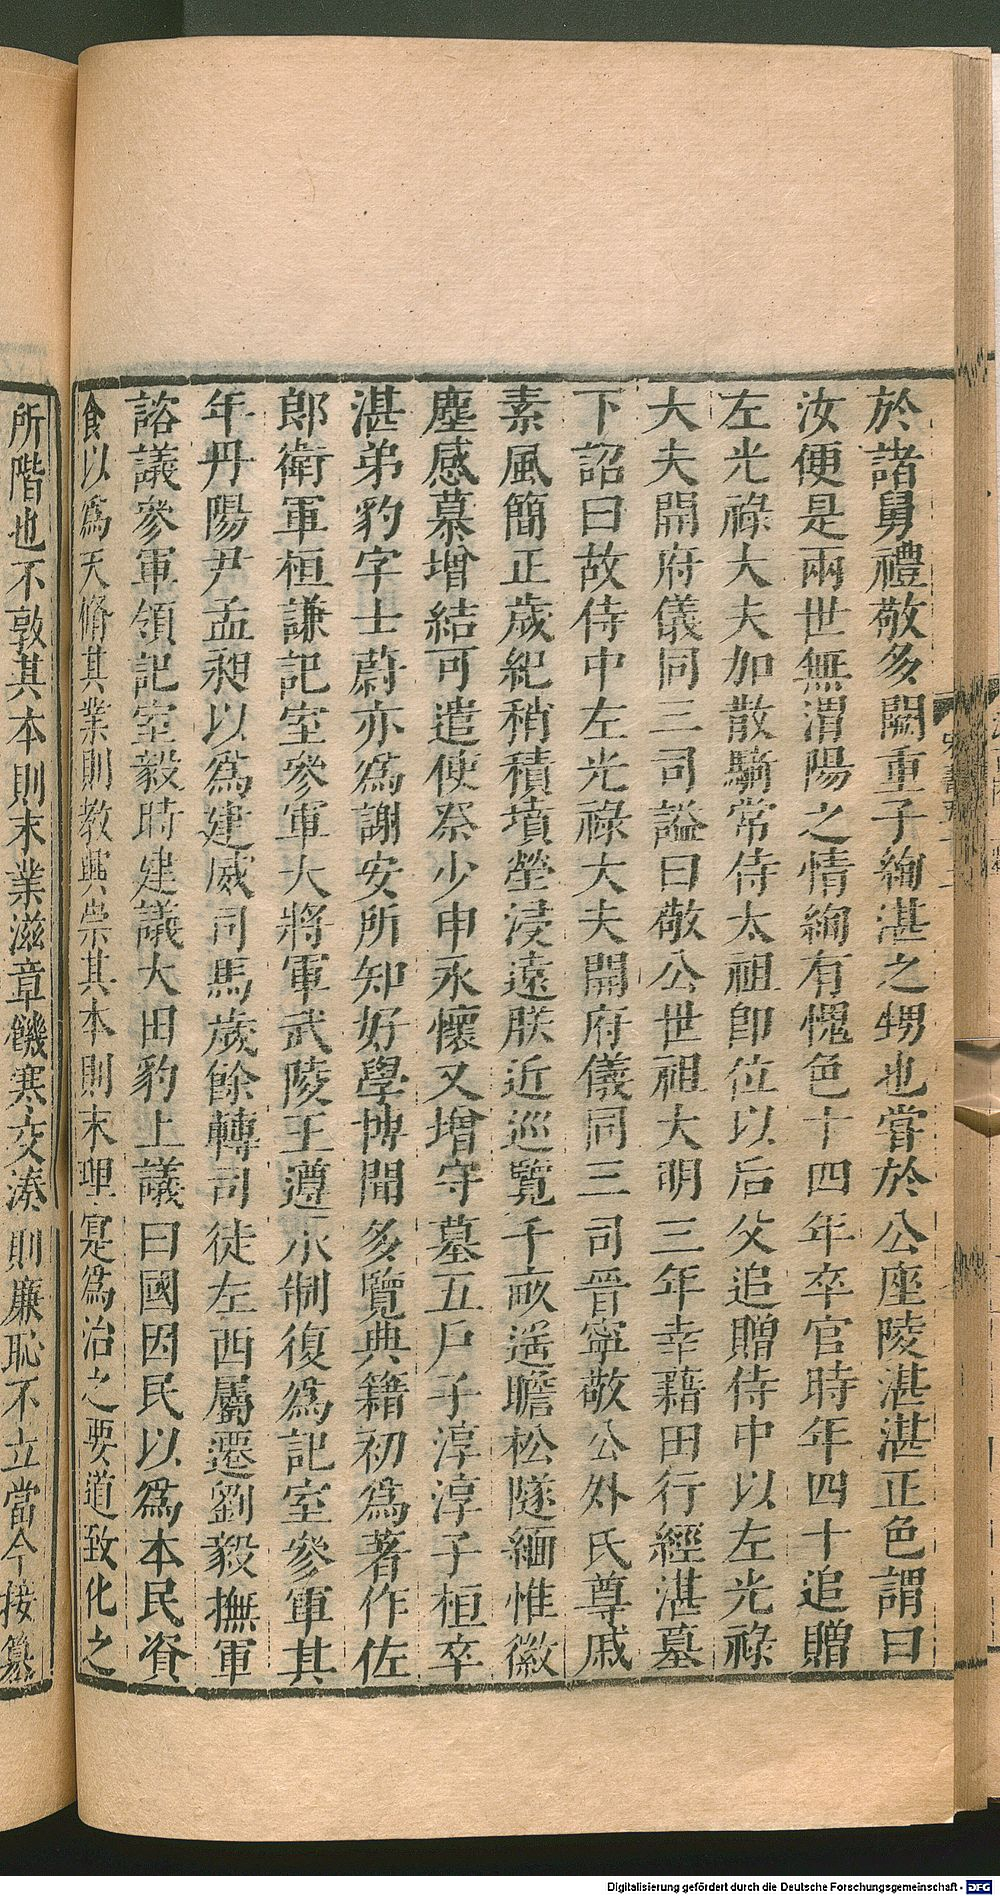 於諸舅禮敬多闕重子絢湛之甥也嘗於公座陵湛湛正色謂曰
汝便是兩世無渭陽之情絢有愧色十四年卒官時年四十追贈
左光祿大夫加散騎常侍太祖即位以后父追贈侍中以左光祿
大夫開府儀同三司謚曰敬公世祖大明三年幸藉田行經湛墓
下詔曰故侍中左光祿大夫開府儀同三司晉寧敬公外氏尊戚
素風簡正歲紀稍積墳塋浸遠朕近巡覽千畝遥瞻松隧緬惟徽
塵感慕增結可遣使祭少申永懷又增守墓五戶子淳淳子桓卒
湛弟豹字士蔚亦爲謝安所知好學博聞多覽典籍初爲著作佐
郎衛軍桓謙記室參軍大將軍武陵王遵承制復爲記室參軍其
年丹陽尹孟昶以爲建威司馬歲餘轉司徒左西屬遷劉毅撫軍
諮議參軍領記室毅時建議大田豹上議曰國因民以爲本民資
食以爲天脩其業則教興崇其本則末理寔爲治之要道致化之
所階也不敦其本則末業滋章饑寒交湊則廉恥不立當今接篡
Digitalisierung gefördert durch die Deutsche Forschungsgemeinschaft - DFG